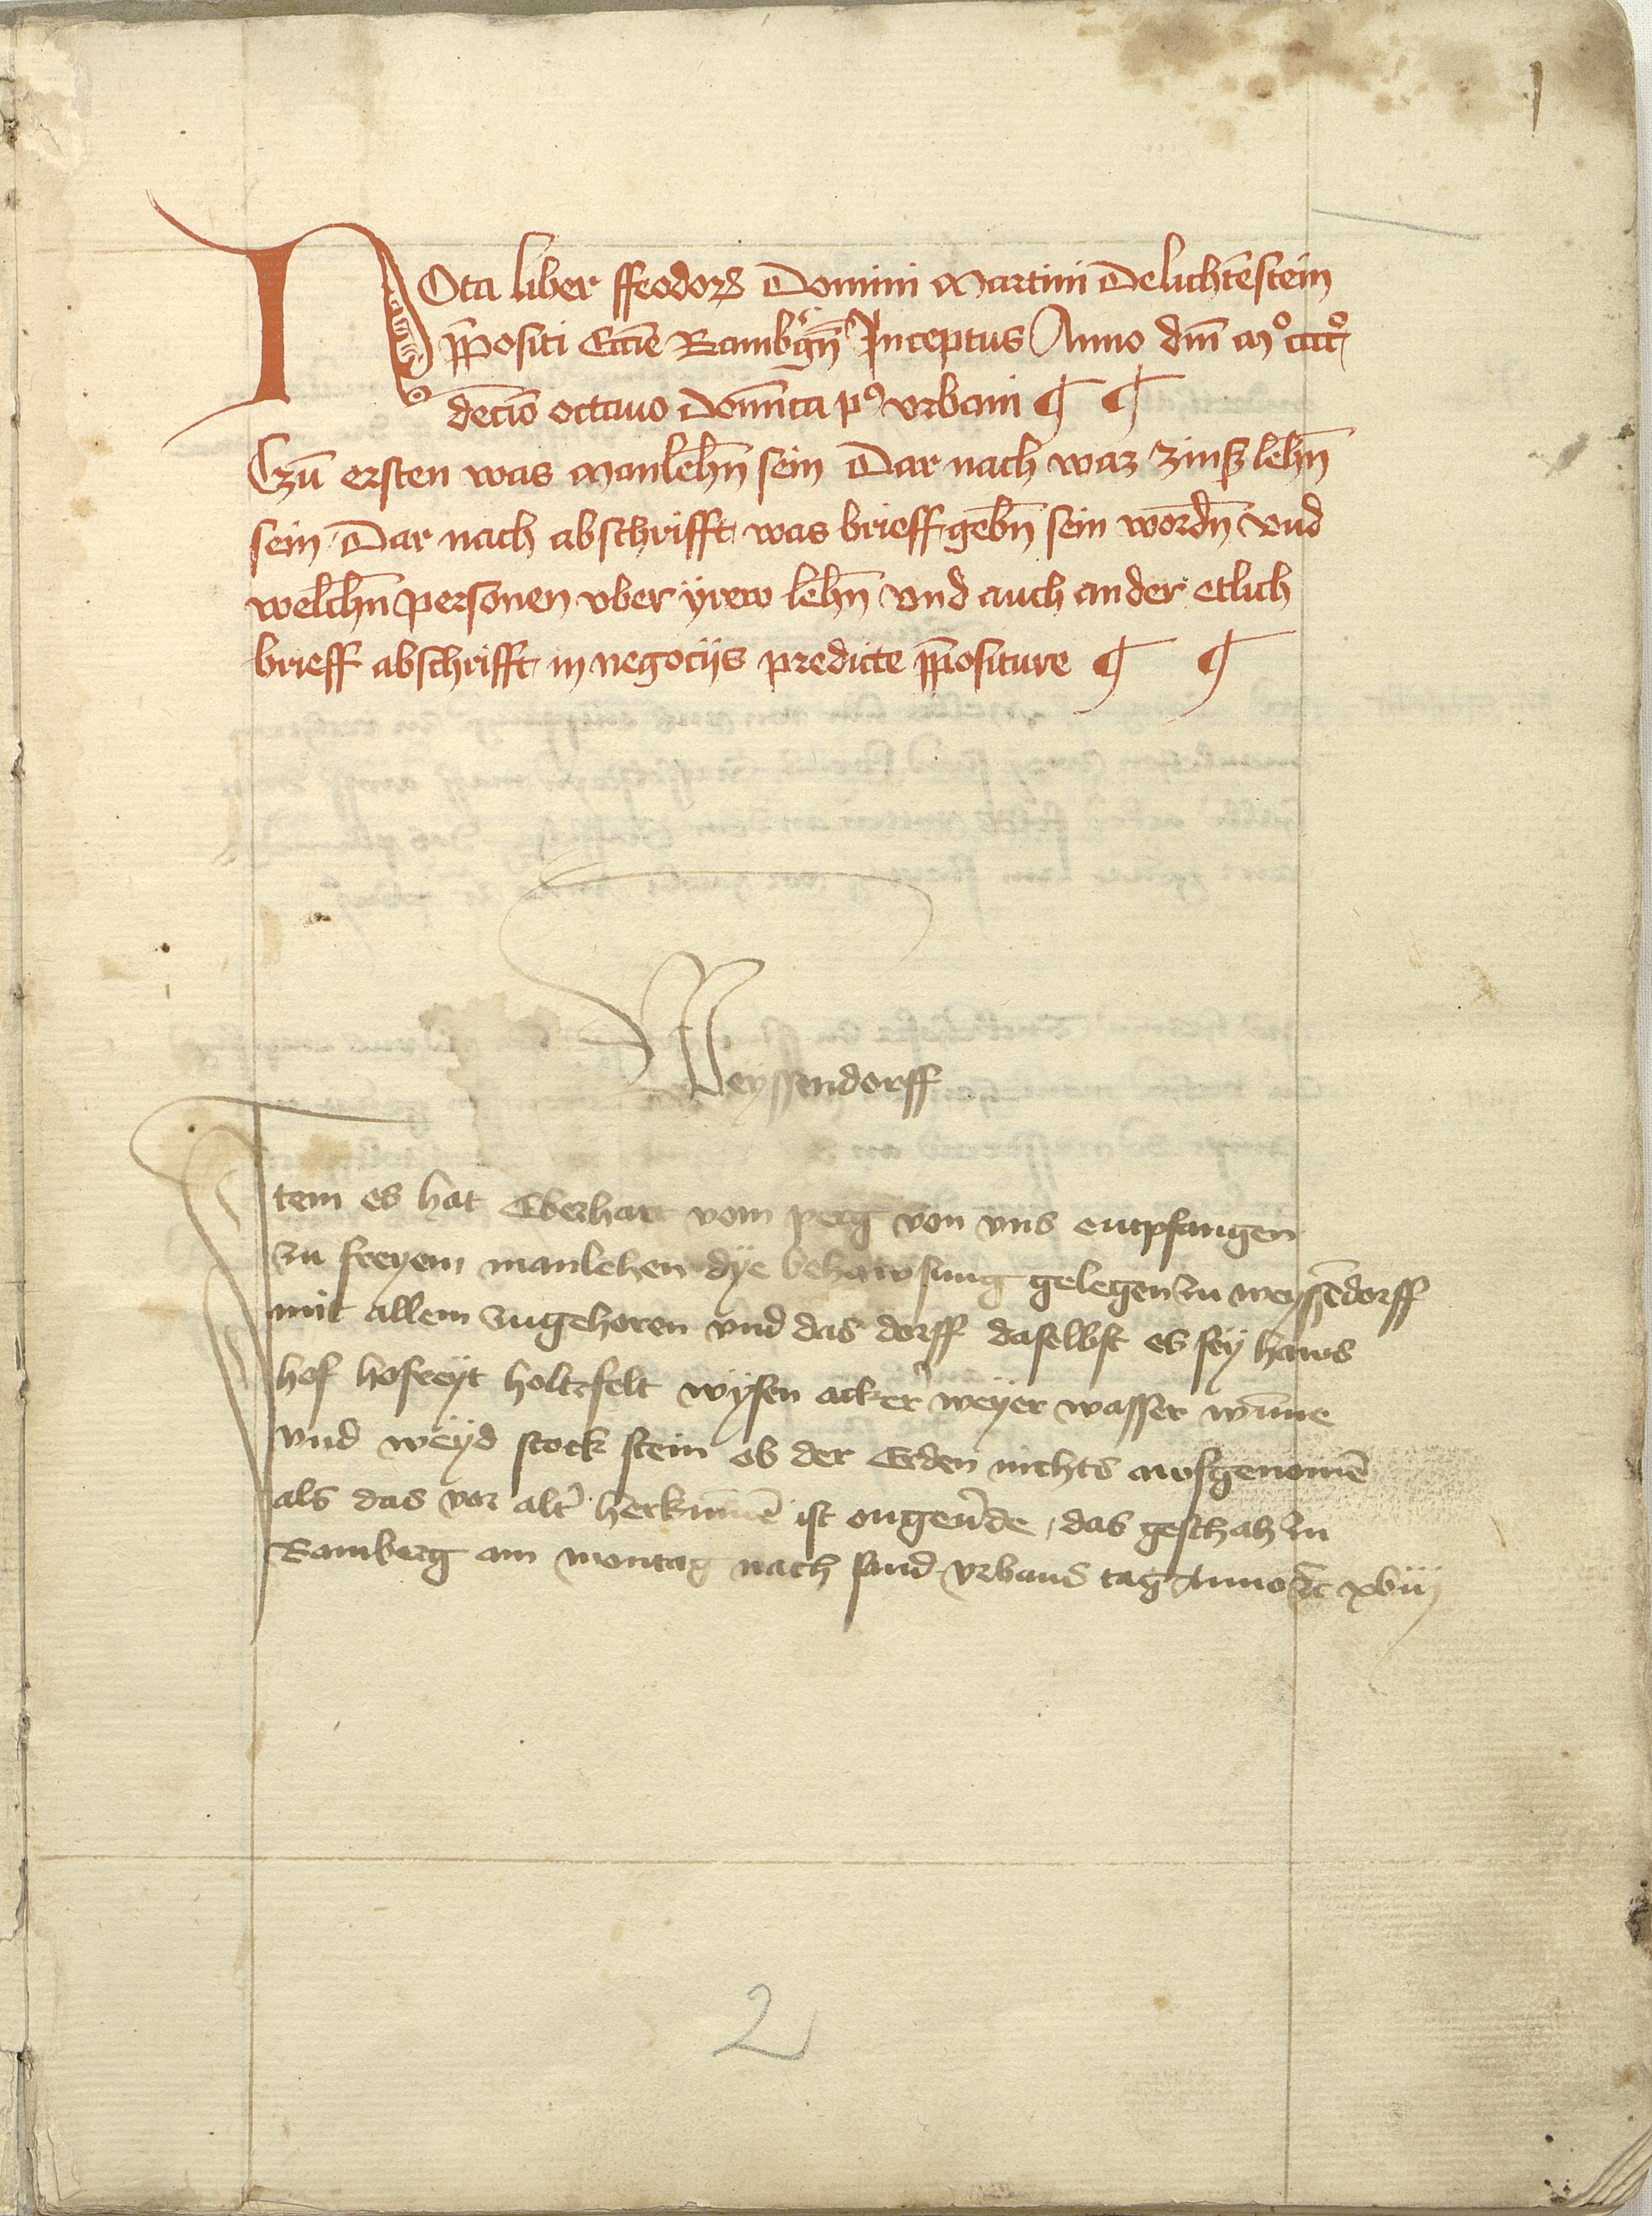 1
NOta liber ffeodorꝝ Domini Martini De lichtēstein
p̄positi Eccīe Bambḡn̄ Inceptus Anno dn̄i Mº ccccº
decīo octauo Domīca pꝰ vrbani ¶ ¶
Czū ersten was Manlehn̄ sein Dar nach waz zinßlehn̄
sein Dar nach abschrifft was brieff gebn̄ sein wordn̄ vnd
welchn̄ personen vber yrew lehn̄ vnd auch ander etlich
brieff abschrifft in negocijs predicte p̄positure ¶ ¶
Weyssendorff
Item es hat Eberhart vom perg von vns entpfangen
zu freyem manlehen dye behawsung gelegen zu weyssēdorff
mit allem zugehoren vnd das dorff daselbst es sey haws
hof hofreyt holtz felt wysen acker weyer wasser wūne
vnd weyd stock stein ob der Erden nichts awsgenomē
als das vor alt̄ herkūmē ist ongeūde, das geschah zu
Bamberg am montag nach sand vrbans tag Anno ꝛc xviij
2